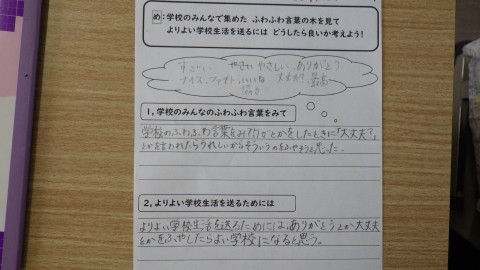 め:学校のみんなで集めた ふわふわ言葉の木を見て
よりよい学校生活を送るには どうしたら良いか考えよう!
すごい やさしい ありがとう
ナイス、ファイト、いいね 大丈夫? 最高
1,学校のみんなのふわふわ言葉をみて
学校のふわふわ言葉をみて
とかをしたときに「大丈夫?」
とかを言われたらうれしいからそういうのを
思った.
2,よりよい学校生活を送るためには
よりよい学校生活を送るためには、ありがとうとか大丈夫
とかをふやしたらよい学校になると思う。